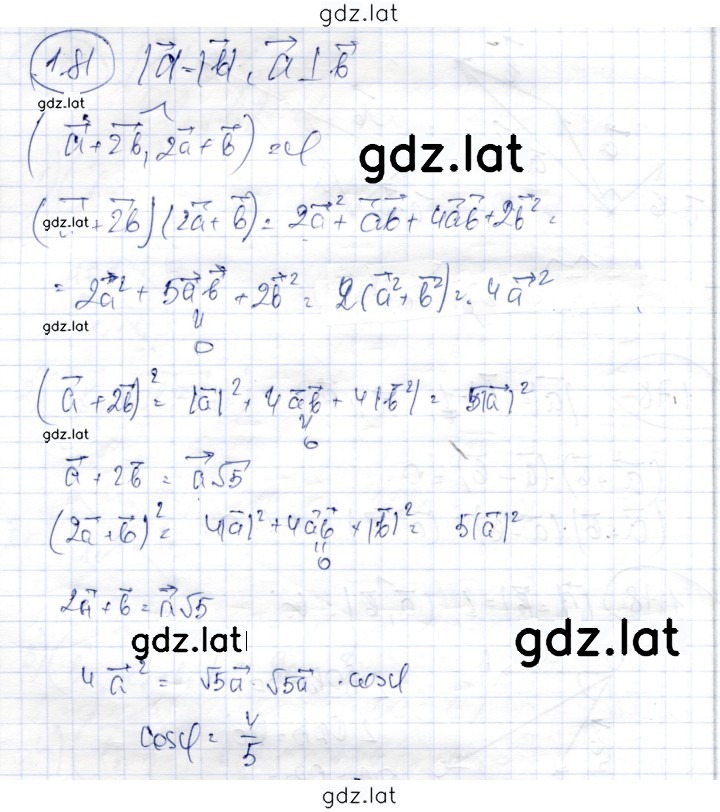 gdz.lat
1.81 |a⃗|=|b⃗|, a⃗⊥b⃗
gdz.lat
(a⃗+2b⃗, 2a⃗+b⃗)=φ
gdz.lat
(a⃗+2b⃗)(2a⃗+b⃗)=2a⃗²+a⃗b⃗+4a⃗b⃗+2b⃗²=
gdz.lat
=2a⃗²+5a⃗b⃗+2b⃗²=2(a⃗²+b⃗²)=4a⃗²
gdz.lat
0
(a⃗+2b⃗)²=|a⃗|²+4a⃗b⃗+4|b⃗²|=5|a⃗|²
gdz.lat
0
a⃗+2b⃗=a⃗√5
(2a⃗+b⃗)²=4|a⃗|²+4a⃗b⃗+|b⃗|²=5|a⃗|²
0
2a⃗+b⃗=a⃗√5
gdz.lat
gdz.lat
4a⃗²=√5a⃗·√5a⃗·cosφ
cosφ=4/5
gdz.lat